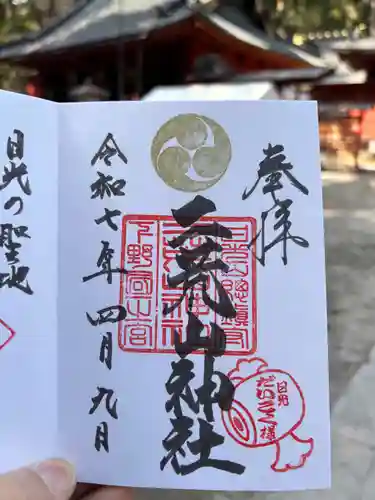 奉拝
二荒山神社
下野国一之宮
日光
だいこく様
令和七年四月九日
日光の聖地